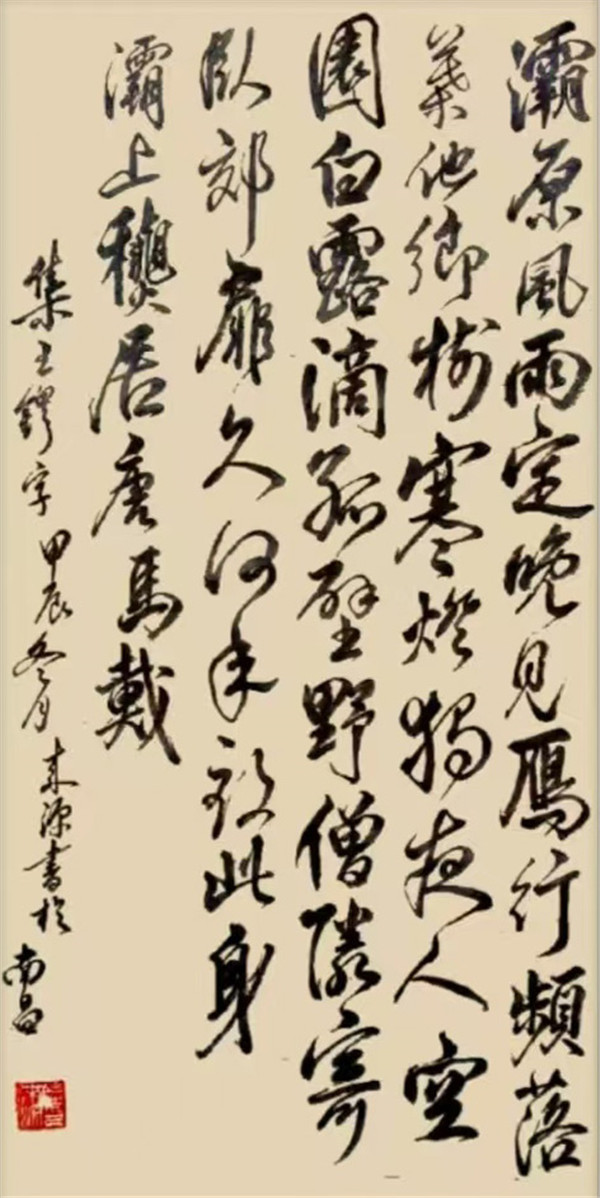 灞原風雨定晚見鴈行頻落
葉他鄉樹寒燈獨夜人空
園白露滴孤壁野僧隣寄
臥郊扉久何年致此身
灞上穐居唐馬戴
集王鐸字甲辰冬月來源書於南昌